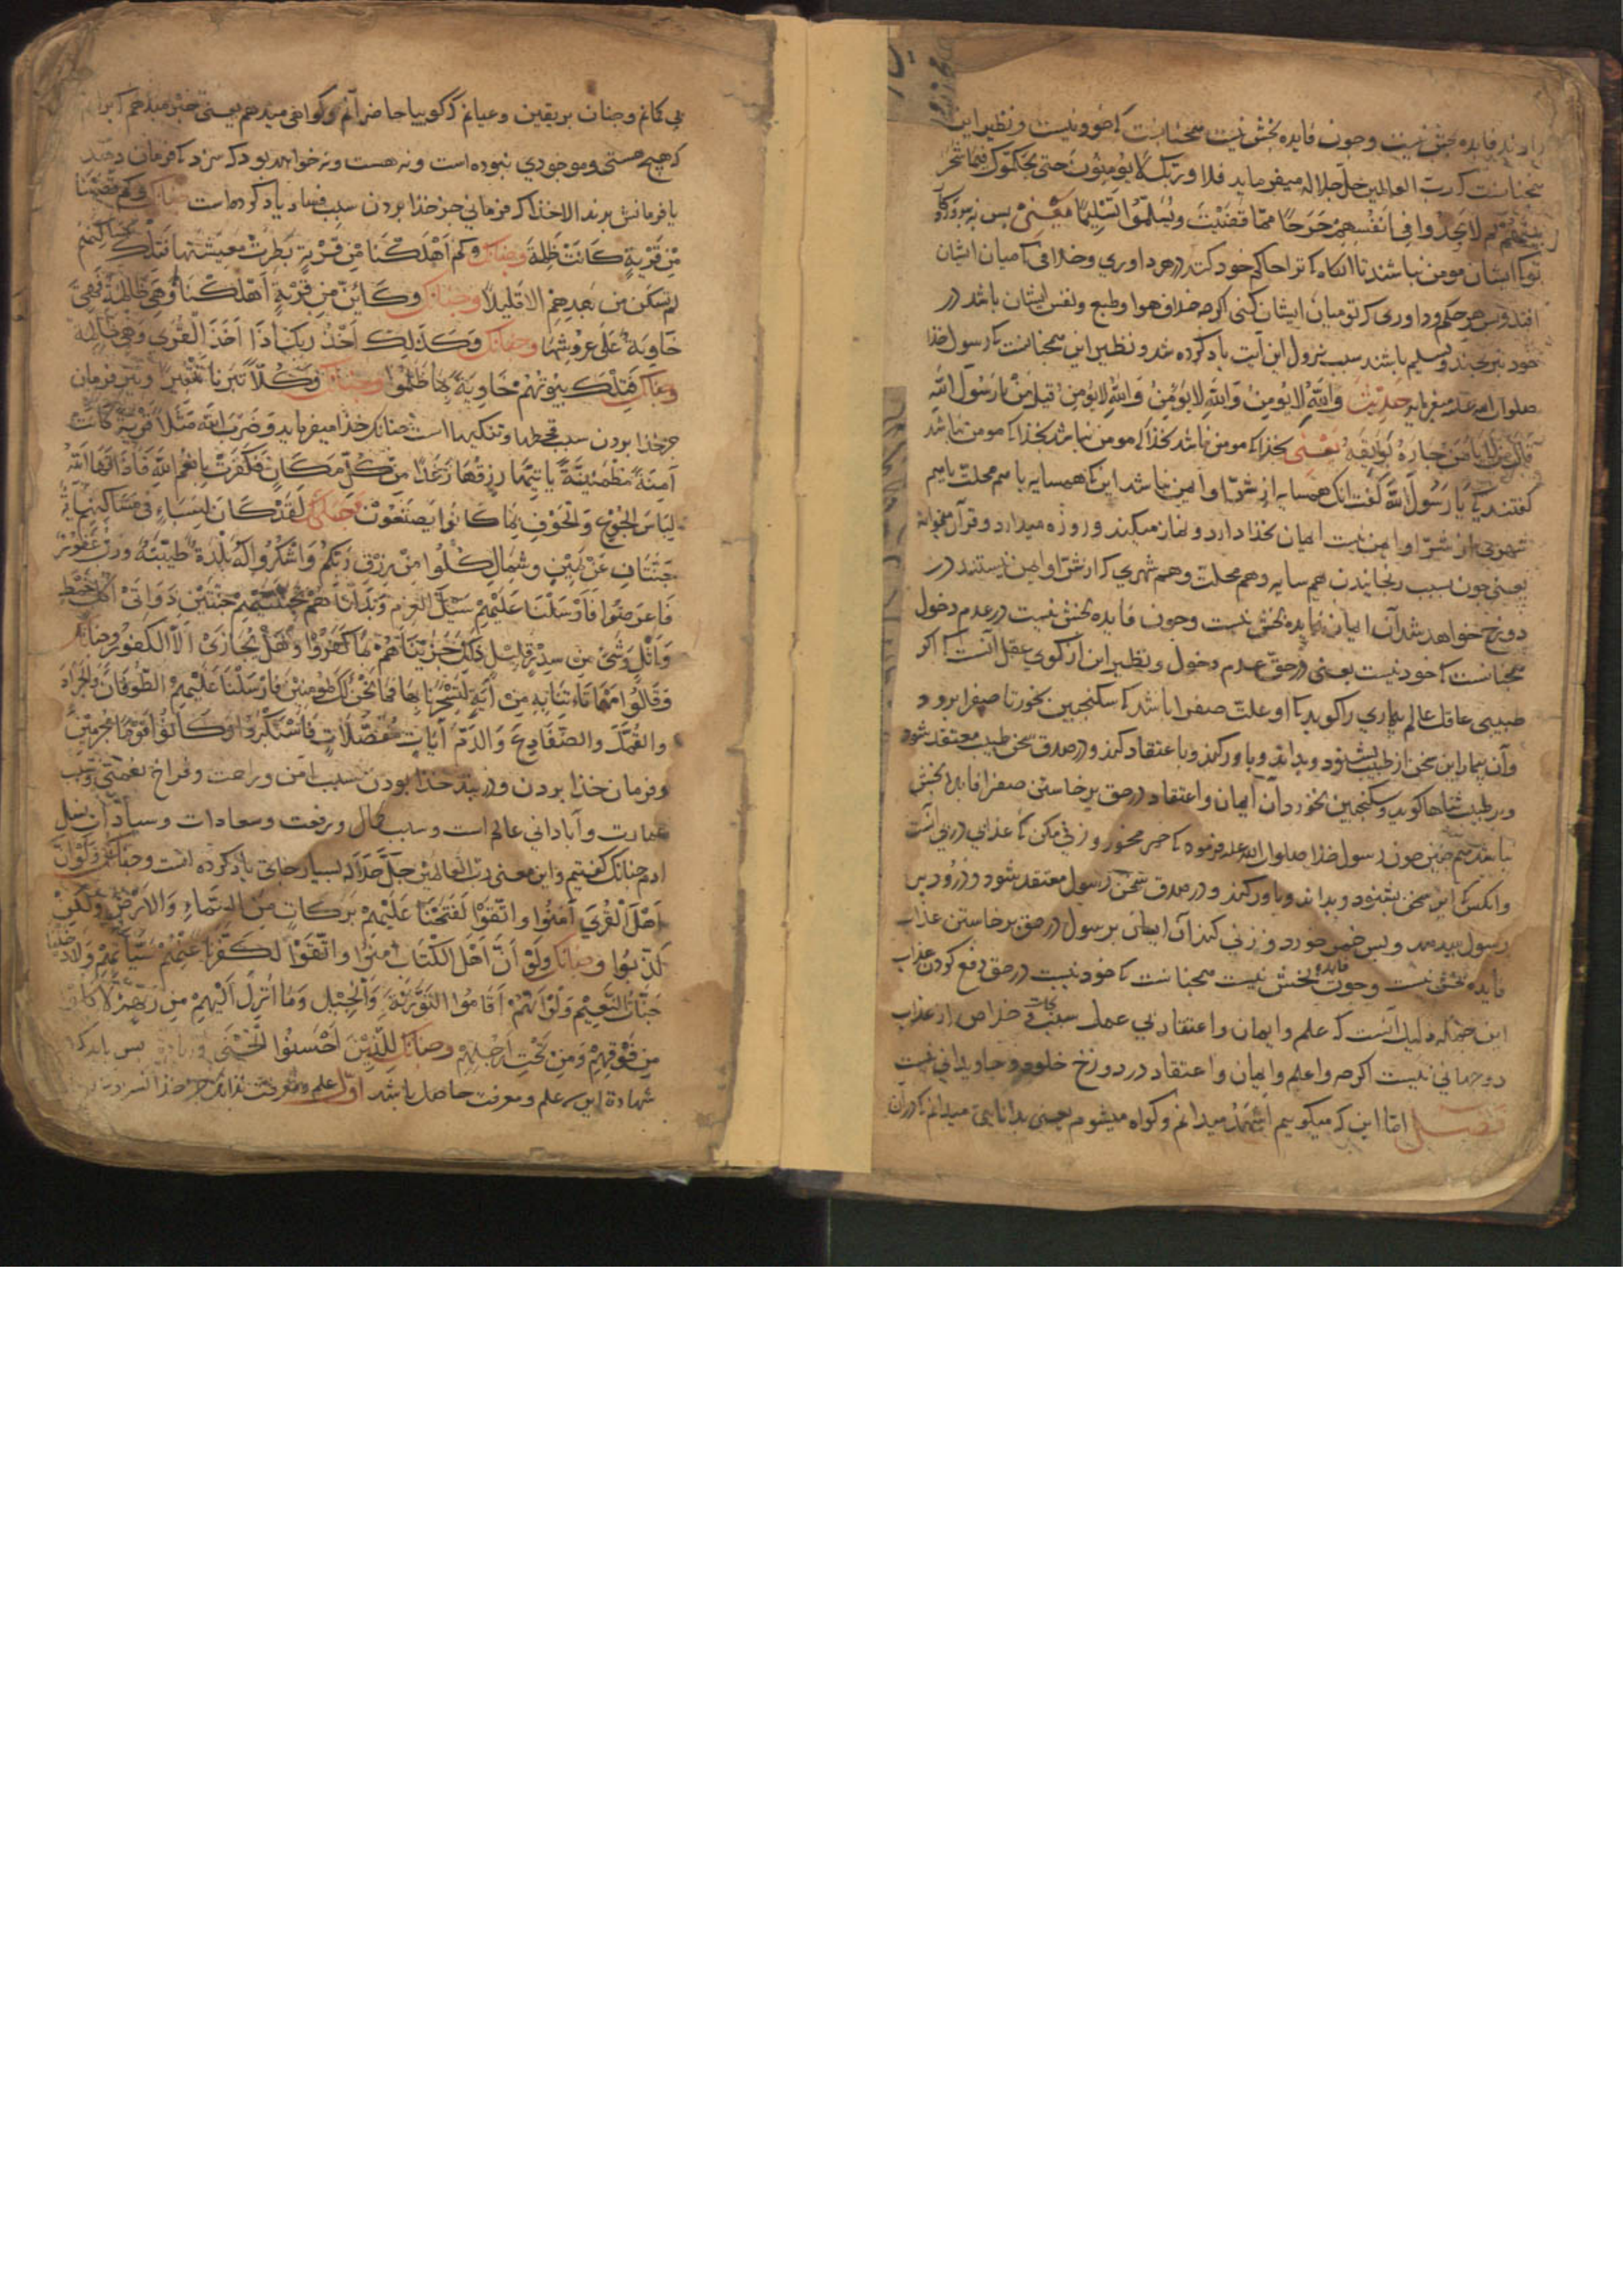 دارند فایده بخش نیست وچون فایده بخش نیست همچنانست که خود نیست ونظیر این
سخنانست که رب العالمین جل جلاله میفرماید فلا وربک لا یؤمنون حتی یحکموک فیما شجر
بینهم ثم لا یجدوا فی انفسهم حرجا مما قضیت ویسلموا تسلیما یعنی پس نه بپروردکار
تو که ایشان مومن نباشند تا انکاه که ترا حاکم خود کنند در هر داوری وخلافی که میان ایشان
افتد وپس هر حکم وداوری که تو میان ایشان کنی اکرچه خلاف هوا وطبع ونفس ایشان باشد در
خود نبرنجند وتسلیم باشند سبب نزول این آیت یاد کرده شد ونظیر این همچنانست که رسول خذا
صلوات الله علیه میفرماید حدیث والله لا یومن والله لا یومن والله لا یومن قیل من یا رسول الله
قال من لا یأمن جاره بوایقه یعنی بخذا که مومن نباشد بخذا که مومن نباشد بخذا که مومن نباشد
کفتند کی یا رسول الله کفت انک همسایه از شر او امین نباشد این که همسایه یا سم محلت یا سم
شهری از شر او امین نیست ایمان بخذا دارد ونماز میکند وروزه میدارد وقرآن میخواند
یعنی چون سبب رنجانیدن هم سایه وهم محلت وهم شهری که از شر او امین نیستند در
دوزخ خواهد شد آن ایمان فایده بخش نیست وچون فایده بخش نیست در عدم دخول
همچنانست که خود نیست یعنی در حق عدم دخول ونظیر این از کوی عقل آنست که اکر
طبیبی عاقل عالم بیماری را کوید که او علت صفرا باشد که سکنجبین بخور تا صفرا برود
وآن بیمار این سخن از طبیب بشنود وبداند وباور کند وبا اعتقاد کند ودر صدق سخن طبیب معتقد شود
وبر طبیب ثناها کوید وسکنجبین نخورد آن ایمان واعتقاد در حق برخاستن صفرا فایده بخش
نباشد هم چنین چون رسول خذا صلوات الله علیه فرموده که خمر مخور وزنی مکن که عذاب در پی آنست
وانکس این سخن بشنود وبداند وباور کند ودر صدق سخن رسول معتقد شود ودرود بر
رسول میدهد وپس خمر خورد وزنی کند آن ایمان بر رسول در حق برخاستن عذاب
فایده بخش نیست وچون فایده بخش نیست همچنانست که خود نیست در حق دفع کردن عذاب
این جمله دلیل آنست که علم وایمان واعتقاد بی عمل سبب نجات وخلاص از عذاب
دوجهانی نیست اکرچه واعلم وایمان واعتقاد در دوزخ خلود وجاویدانی نیست
فصل اما این که میکوییم اشهد میدانم وکواه میشوم یعنی بدانایی میدانم که در آن
بی کمانم وچنان بریقین وعیانم که کوییا حاضر آنم وکواهی میدهم یعنی خبر میدهم
که هیچ هستی وموجودی نبوده است ونه هست ونه خواهد بود که سزد که فرمان دهند
یا فرمانش برند الا خذا که فرمانی جز خذا بردن سبب فساد یاد کرده است چنانک وکم قصمنا
من قریة کانت ظلمة وچنانک وکم اهلکنا من قریة بطرت معیشتها فتلک مساکنهم
لم تسکن من بعدهم الا قلیلا وچنانک وکاین من قریة اهلکناها وهی ظالمة فهی
خاویة علی عروشها وچنانک وکذلک اخذ ربک اذا اخذ القری وهی ظالمة
وچنانک فتلک بیوتهم خاویة بما ظلموا وچنانک وکلا تبرنا تتبیرا ونیز فرمان
جز خذا بردن سبب قحطها وتنکیها است چنانک خذا میفرماید وضرب الله مثلا قریة کانت
آمنة مطمئنة یاتیها رزقها رغدا من کل مکان فکفرت بانعم الله فاذاقها الله
لباس الجوع والخوف بما کانوا یصنعون وچنانک لقد کان لسباء فی مساکنهم آیة
جنتان عن یمین وشمال کلوا من رزق ربکم واشکروا له بلدة طیبة ورب غفور
فاعرضوا فارسلنا علیهم سیل العرم وبدلناهم بجنتیهم جنتین ذواتی اکل خمط
واثل وشئ من سدر قلیل ذلک جزیناهم بما کفروا وهل یجازی الا الکفور وچنانک
وقالوا مهما تاتنا به من آیة لتسحرنا بها فما نحن لک بمومنین فارسلنا علیهم الطوفان والجراد
والقمل والضفادع والدم آیات مفصلات فاستکبروا وکانوا قوما مجرمین
وفرمان خذا بردن ودر بند خذا بودن سبب امن وراحت وفراخ نعمتی وسبب
عمارت وآبادانی عالم است وسبب کمال ورفعت وسعادات وسیادات نسل
ادم چنانک کفتیم واین معنی رب العالمین جل جلاله بسیار جای یاد کرده است وچنانک ولو ان
اهل القری آمنوا واتقوا لفتحنا علیهم برکات من السماء والارض ولکن
کذبوا وچنانک ولو ان اهل الکتاب امنوا واتقوا لکفرنا عنهم سیآتهم ولادخلناهم
جنات النعیم ولو انهم اقاموا التوریة والانجیل وما انزل الیهم من ربهم لاکلوا
من فوقهم ومن تحت ارجلهم وچنانک للذین احسنوا الحسنی وزیادة پس باید که
شهادة این علم ومعرفت حاصل باشد اول علم ومعرفت